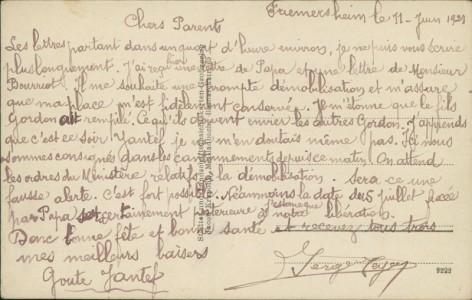 Friemersheim le 11 Juin 1921
Chers Parents
Les lettres partant dans un quart d'heure environ, je ne puis vous écrire
plus longuement. J'ai reçu hier une lettre de Papa et une lettre de Monsieur
Bourriot. Il me souhaite une prompte démobilisation et m'assure
que ma place m'est fidèlement conservée. Je m'étonne que le fils
Gordon ait rempilé. Ce qu'ils doivent envier les autres Gordon. J'apprends
que c'est ce soir je m'en doutais même pas. Ici nous
sommes consignés dans les cantonnements depuis ce matin. On attend
les ordres du Ministère relatifs à la démobilisation. sera ce une
fausse alerte. C'est fort possible. Néanmoins la date du 5 juillet fixée
par Papa est certainement postérieure à notre libération.
Donc bonne fête et bonne santé et recevez tous trois
mes meilleurs baisers
Serge
9222